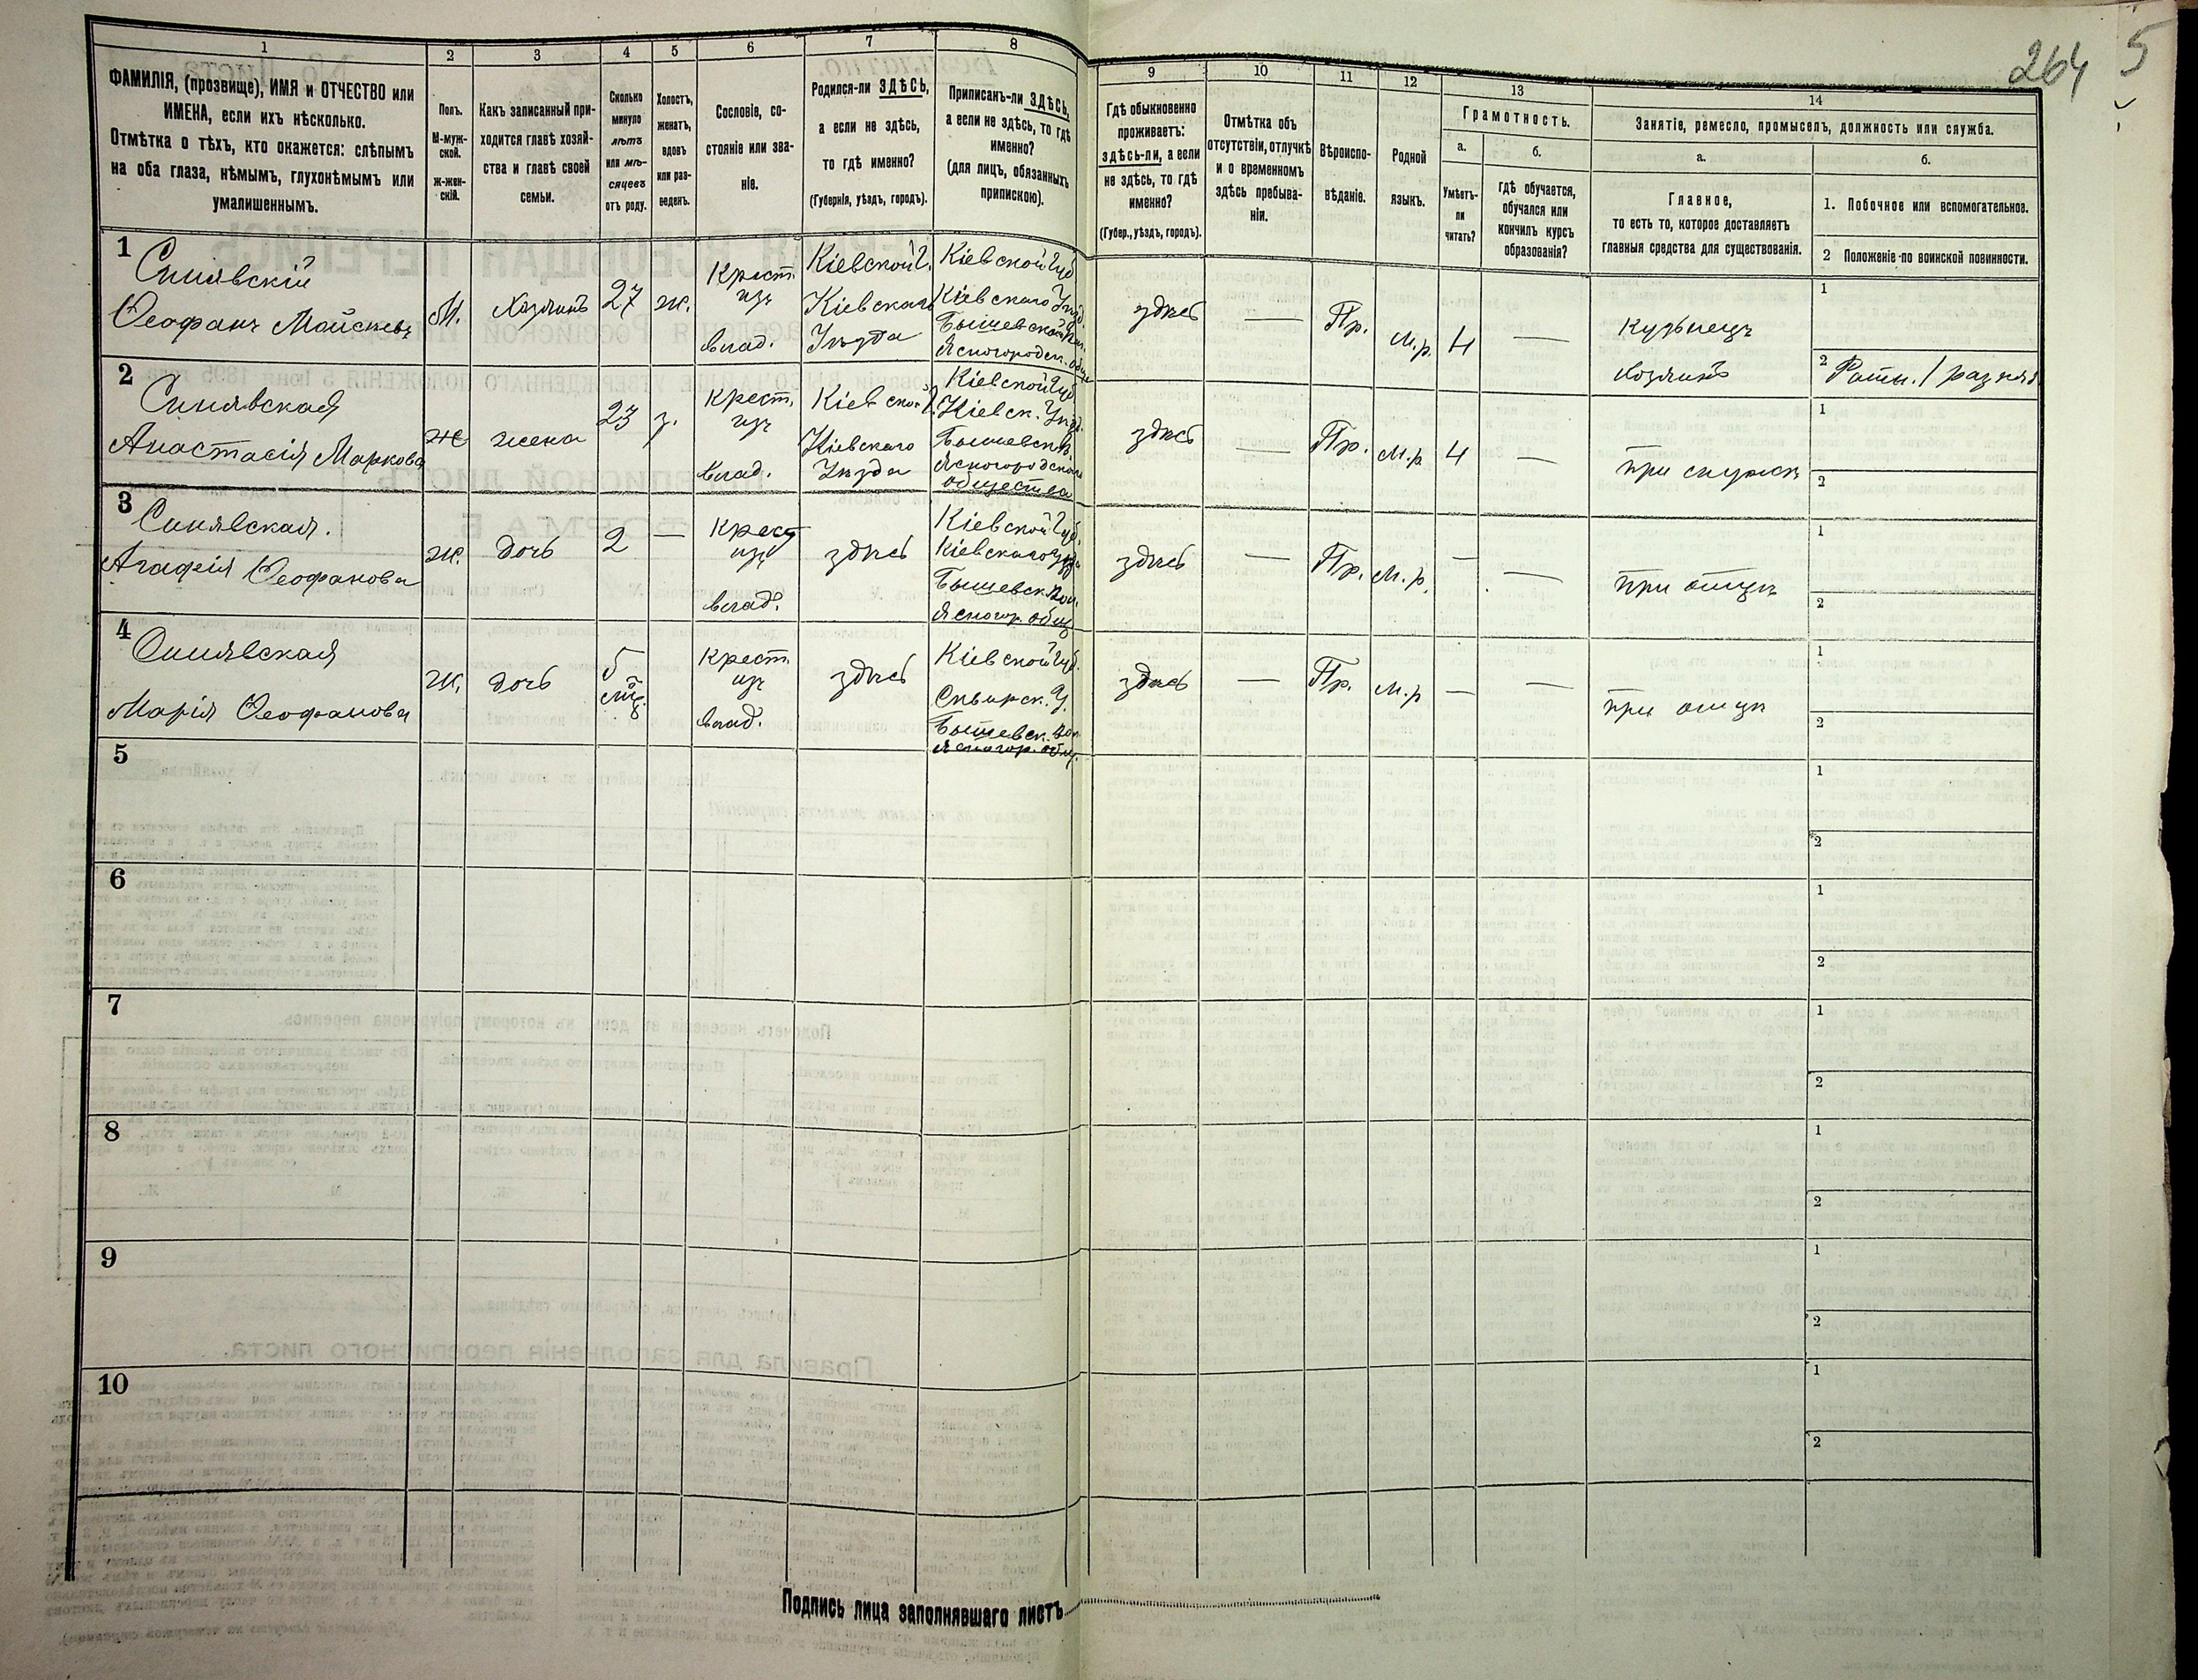 264 5
1 2 3 4 5 6 7 8 9 10 11 12 13 14
ФАМИЛІЯ, (прозвище), ИМЯ и ОТЧЕСТВО или
ИМЕНА, если ихъ нѣсколько.
Отмѣтка о тѣхъ, кто окажется: слѣпымъ
на оба глаза, нѣмымъ, глухонѣмымъ или
умалишеннымъ.
Полъ.
М-муж-
ской.
Ж-жен-
скій.
Какъ записанный при-
ходится главѣ хозяй-
ства и главѣ своей
семьи.
Сколько
минуло
лѣтъ
или мѣ-
сяцевъ
отъ роду.
Холостъ,
женатъ,
вдовъ
или раз-
веденъ.
Сословіе, со-
стояніе или зва-
ніе.
Родился-ли ЗДѢСЬ,
а если не здѣсь,
то гдѣ именно?
(Губернія, уѣздъ, городъ).
Приписанъ-ли ЗДѢСЬ,
а если не здѣсь, то гдѣ
именно?
(для лицъ, обязанныхъ
припискою).
Гдѣ обыкновенно
проживаетъ:
здѣсь-ли, а если
не здѣсь, то гдѣ
именно?
(Губер., уѣздъ, городъ).
Отмѣтка объ
отсутствіи, отлучкѣ
и о временномъ
здѣсь пребыва-
ніи.
Вѣроиспо-
вѣданіе.
Родной
языкъ.
Грамотность.
а.
Умѣетъ-
ли
читать?
б.
гдѣ обучается,
обучался или
кончилъ курсъ
образованія?
Занятіе, ремесло, промыселъ, должность или служба.
а.
Главное,
то есть то, которое доставляетъ
главныя средства для существованія.
б.
1. Побочное или вспомогательное.
2 Положеніе по воинской повинности.
1
Синявскій
Ѳеофанъ
М.
Хозяинъ
27
ж.
Крест.
изъ
влад.
Кіевской Г.
Кіевскаго
Уѣзда
Кіевской Губ
Кіевскаго Уѣзд.
Бышевской Вол.
Ясногородск. общ
здѣсь
—
Пр.
М.р.
Н
—
Кузнецъ
хозяинъ
1
2 Ратн. 1 разряд.
2
Синявская
Анастасія Маркова
ж
жена
23
з.
Крест.
изъ
влад.
Кіевской Г.
Кіевскаго
Уѣзда
Кіевской Губ
Кіевск. Уѣзд.
Бышевск. В.
Ясногородскаго
общества
здѣсь
—
Пр.
М.р.
Н
—
при
1
2
3
Синявская.
Агафія Ѳеофанова
ж.
дочь
2
—
Крест
изъ
влад.
здѣсь
Кіевской Губ.
Кіевскаго Уѣзд
Бышевск. Вол.
Ясногор. общ
здѣсь
—
Пр.
М.р.
—
—
при отцѣ
1
2
4
Синявская
Марія Ѳеофанова
Ж.
дочь
5
мц.
Крест.
изъ
влад.
здѣсь
Кіевской Губ.
Сквирск. У.
Бышевск. Вол
Ясногор. общ.
здѣсь
—
Пр.
М.р
—
—
при отцѣ
1
2
5
1
2
6
1
2
7
1
2
8
1
2
9
1
2
10
1
2
Подпись лица заполнявшаго листъ